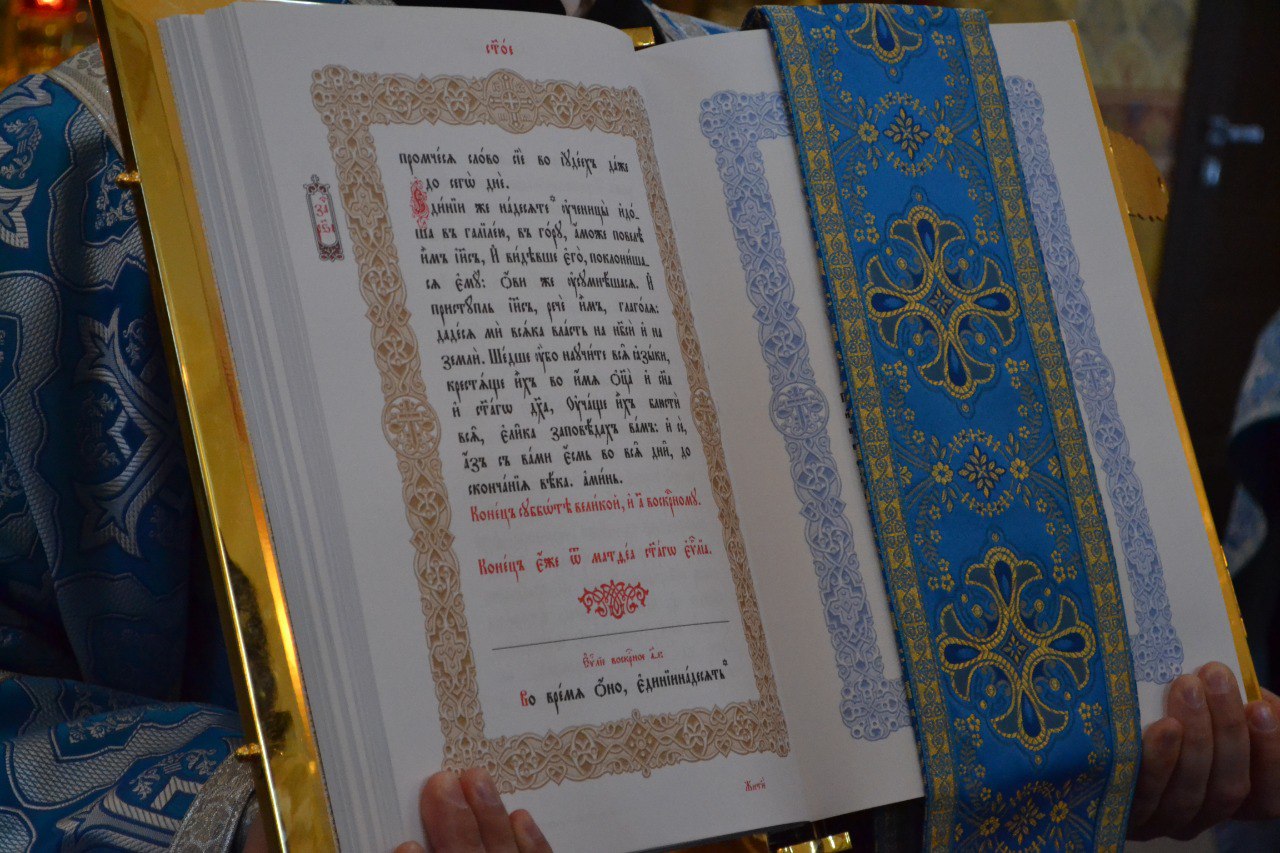 ст҃о́е
промче́сѧ сло́во сїѐ во і҆ꙋде́ехъ да́же
до сегѡ̀ днѐ.
Є҆ди́нїи же на́десѧте ᲂу҆ченицы̀ и҆до́-
ша въ галїле́ю, въ го́рꙋ, а҆́може повелѣ̀
и҆̀мъ і҆и҃съ, И҆ ви́дѣвше є҆го̀, поклони́ша-
сѧ є҆мꙋ̀: ѻ҆́ви же ᲂу҆сꙋмнѣ́шасѧ. И҆
пристꙋ́пль і҆и҃съ, речѐ и҆̀мъ, глаго́лѧ:
даде́сѧ мѝ всѧ́ка вла́сть на нб҃сѝ и҆ на
землѝ. Ше́дше ᲂу҆̀бо наꙋчи́те всѧ̑ ꙗ҆зы́ки,
крестѧ́ще и҆̀хъ во и҆́мѧ ѻ҆ц҃а̀ и҆ сн҃а
и҆ ст҃а́гѡ дх҃а, Оу҆ча́ще и҆̀хъ блюстѝ
всѧ̑, є҆ли̑ка заповѣ́дахъ ва́мъ: и҆ и҆,
а҆́зъ съ ва́ми є҆́смь во всѧ̑ дни̑, до
сконча́нїѧ вѣ́ка. а҆ми́нь.
Коне́цъ сꙋббѡ́тѣ вели́кой, и҆ а҃ воскрⷭ҇номꙋ.
Коне́цъ є҆́же ѿ матѳе́а ст҃а́гѡ є҆ѵⷢ҇лїа.
Є҆ѵⷢ҇лїе воскрⷭ҇ное а҃.
Во вре́мѧ ѻ҆́но, є҆ди́нїинадесѧть
Житїѝ